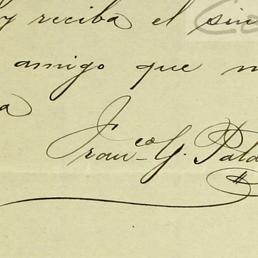 y reciba el sin
amigo que m
a
Fran.co G. Pala